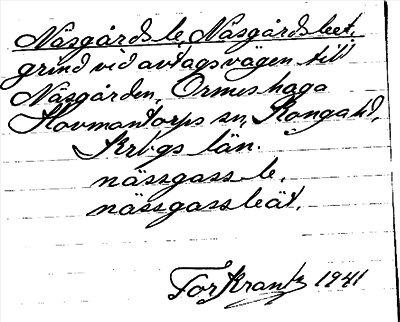 Näsgårds le, Näsgårdsleet,
grind vid avtagsvägen till
Näsgården, Ormeshaga
Hovmantorps sn, Konga hd,
Krbgs län.
nässgass le,
nässgassleät,
Tor Krantz 1941